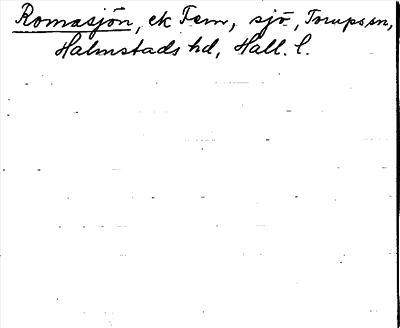 Romasjön, ek Fem, sjö, Torups sn,
Halmstads hd, Hall. l.